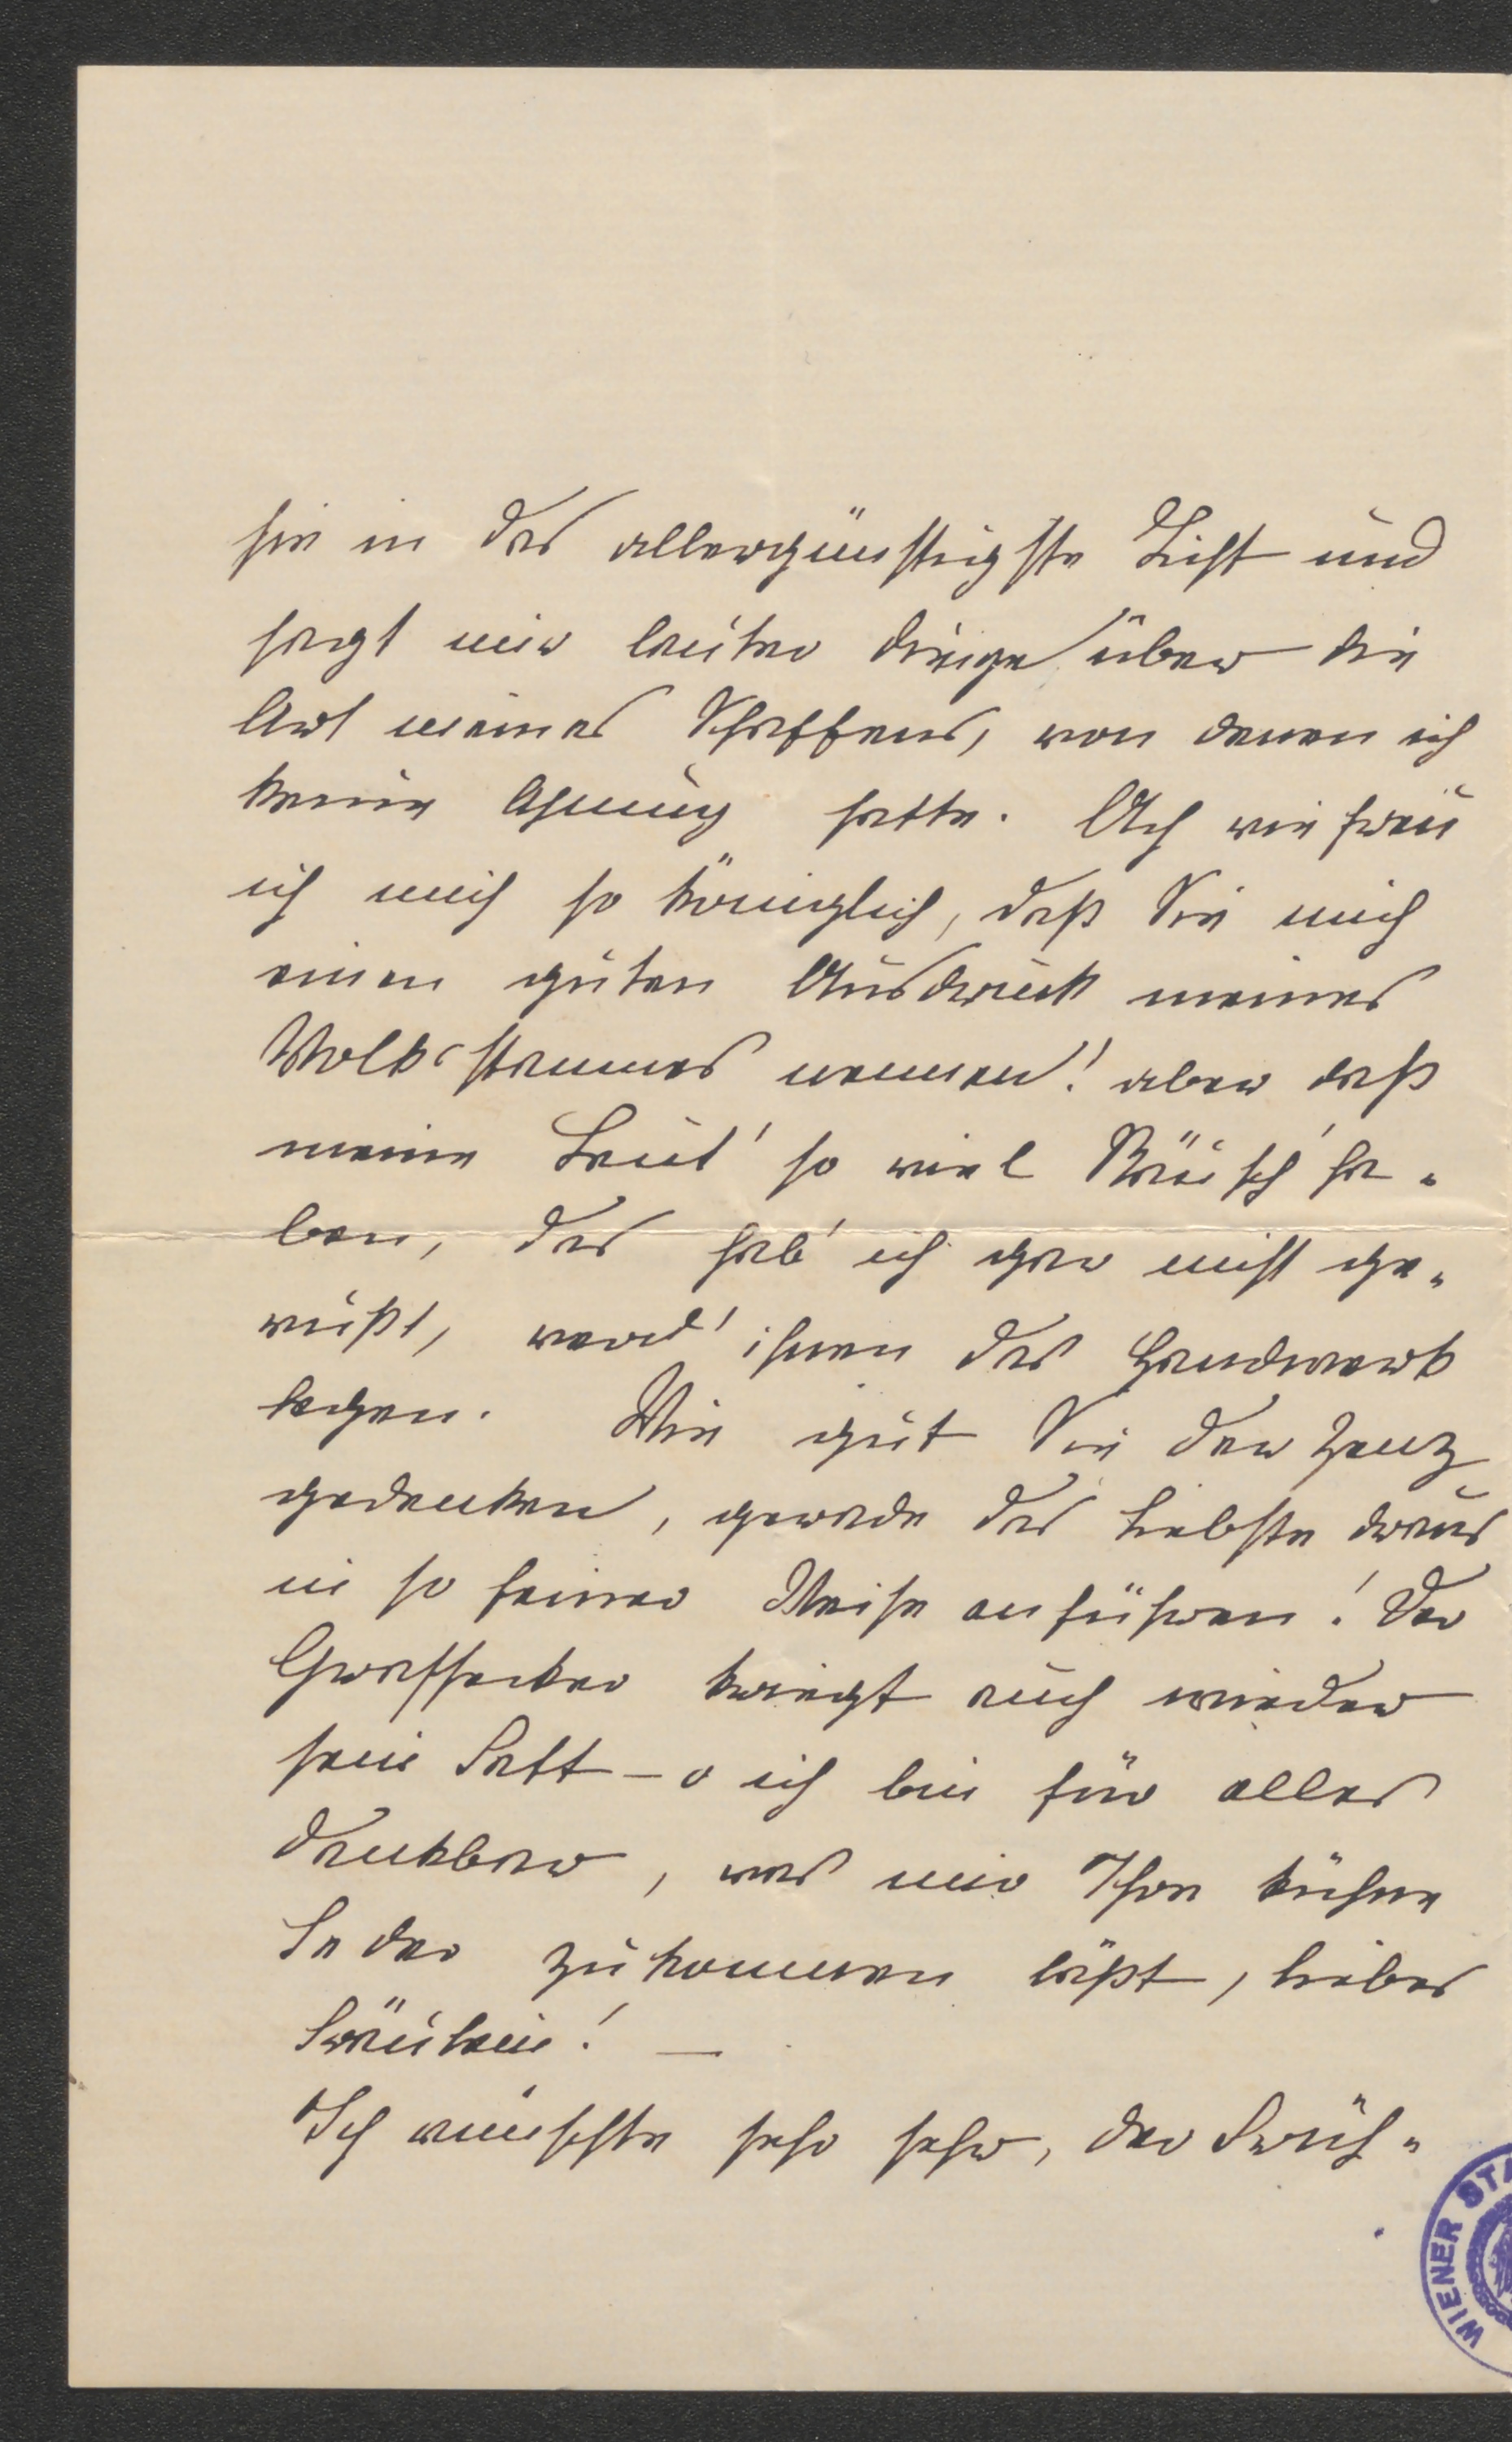 sie in das allergünstigste Licht und
sagt mir lauter Dinge über die
Art meines Schaffens, von denen ich
keine Ahnung hatte. Ach wie freu
ich mich so königlich, daß Sie mich
einen guten Ausdruck meines
Volksstammes nennen! aber daß
meine Leut' so viel Räusch' ha-
ben, das hab' ich gar nicht ge-
wußt, werd' ihnen das Handwerk
legen. Wie gut Sie der Zenz
gedenken, gerade das Liebste draus
in so feiner Weise anführen! Der
Grasseker kriegt auch wieder
sein Saft – o ich bin für alles
dankbar, was mir Ihre kühne
Feder zukommen läßt, liebes
Fräulein! –
Ich wünschte sehr sehr, der Früh-
WIENER STA